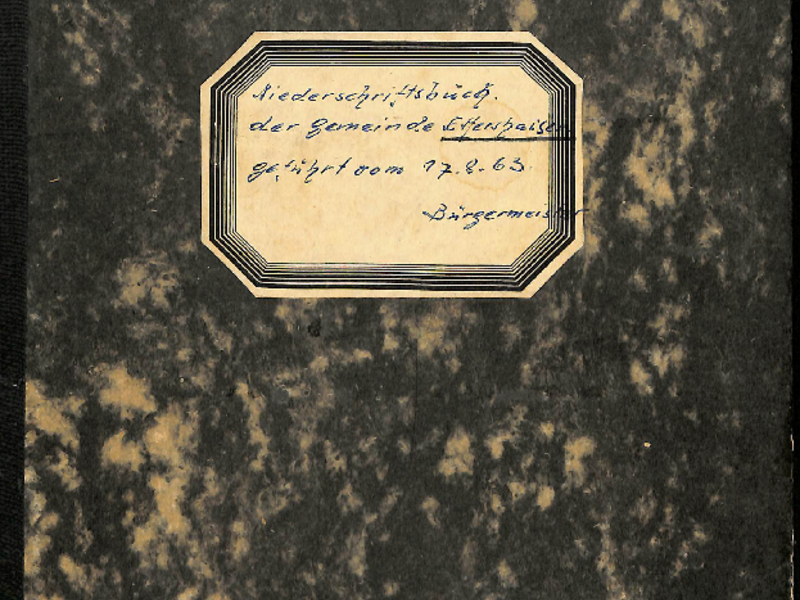 Niederschriftsbuch.
der Gemeinde Elfershausen
geführt vom 17.2.63.
Bürgermeister